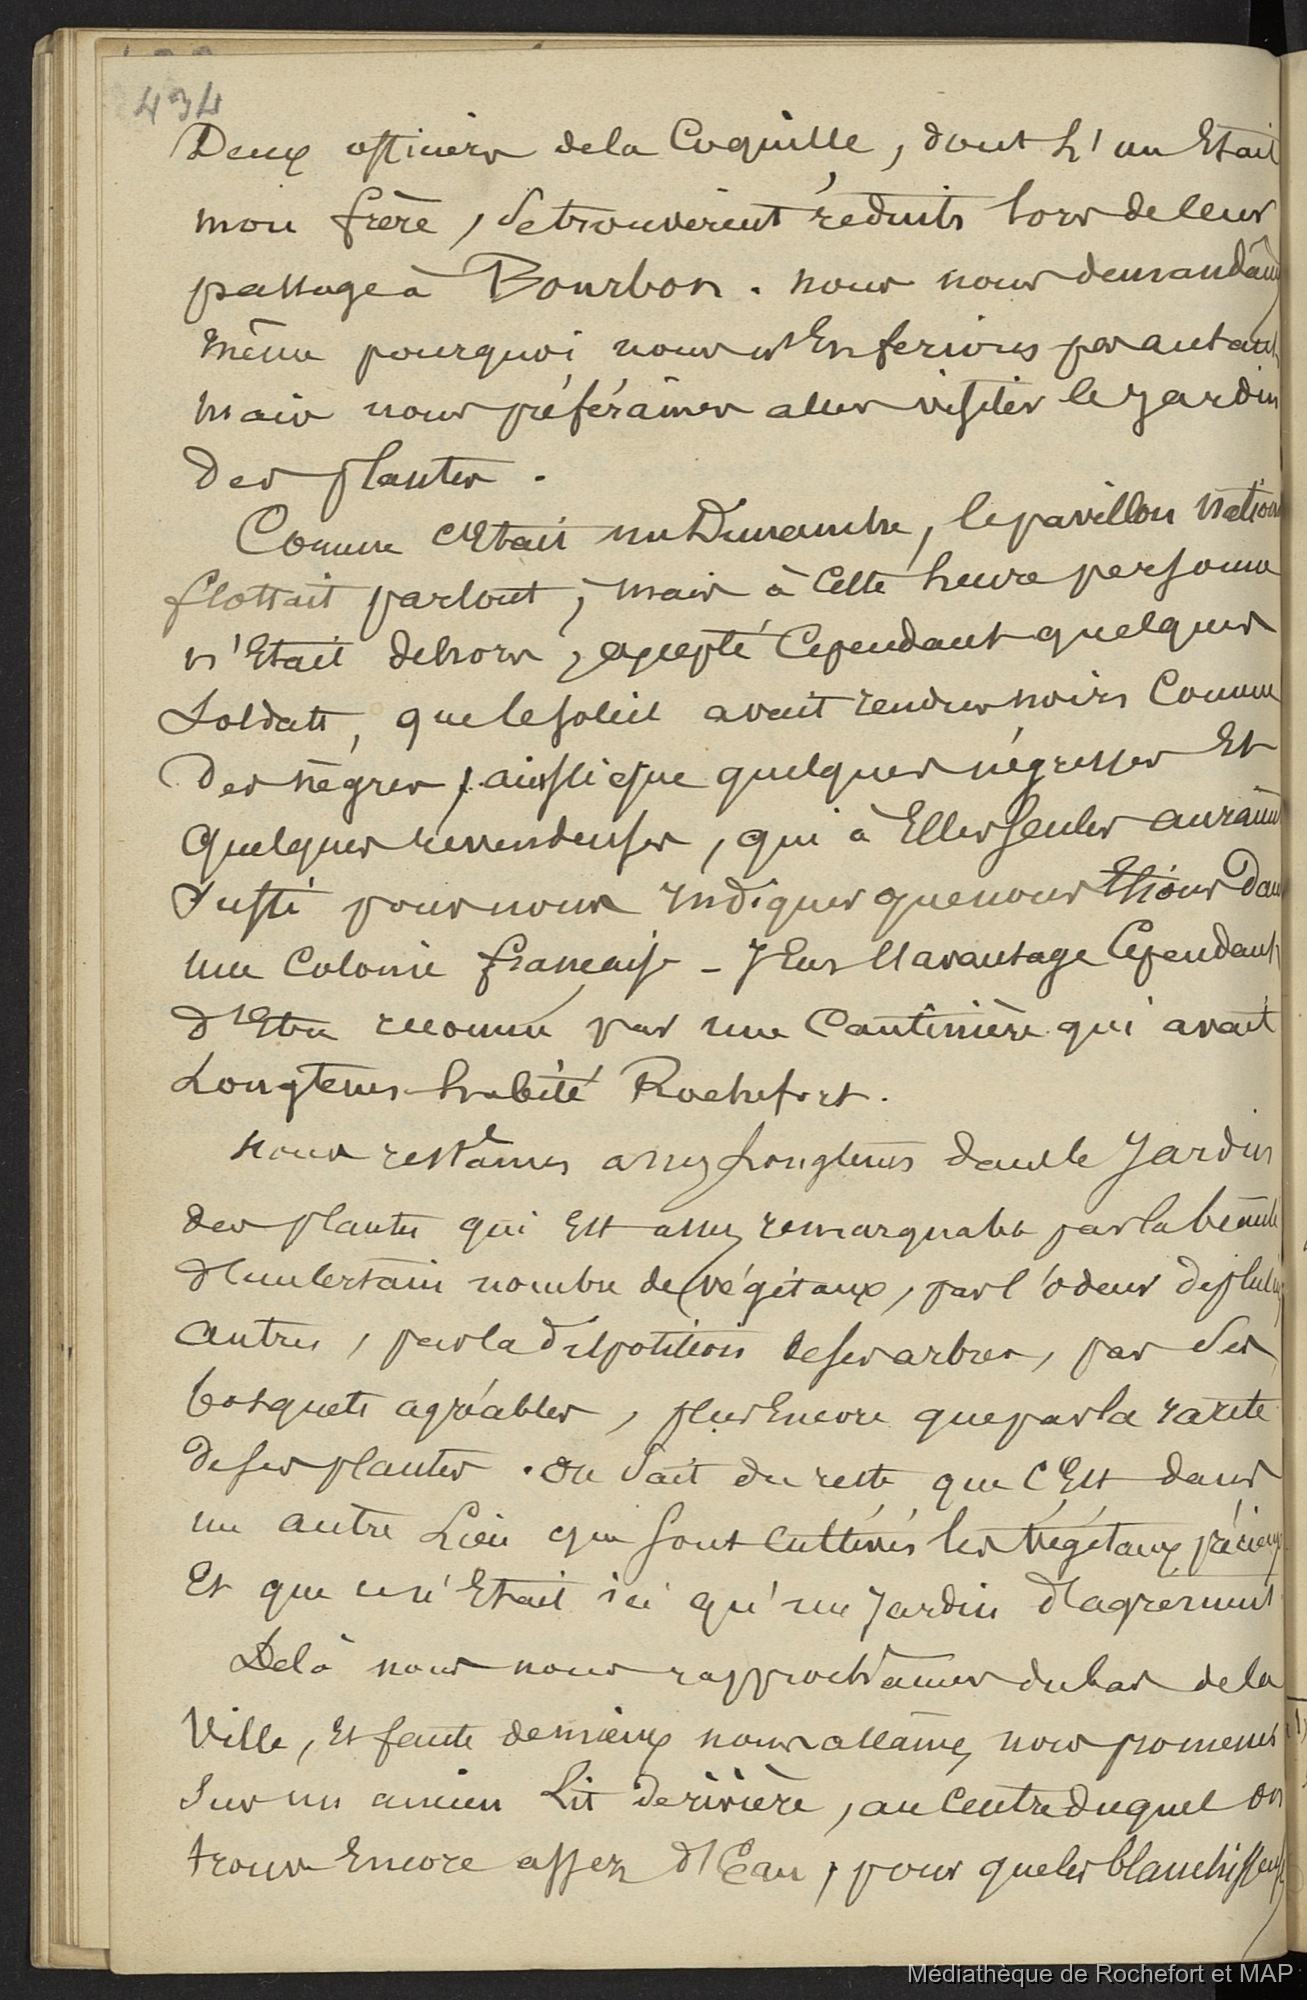 434
Deux officiers de la Coquille, dont L'un Etait
mon frère, se trouvèrent réduits lors de leur
passage à Bourbon. nous nous demandâmes
même pourquoi nous n'En ferions pas autant
mais nous préférâmes aller visiter le Jardin
Des plantes.
Comme c'Etait un Dimanche, le pavillon National
flottait partout; mais à Cette heure personne
n'Etait dehors, excepté Cependant quelques
Soldats, que le soleil avait rendus noirs Comme
Des nègres, ainsi que quelques négresses Et
quelques revendeuses, qui à Elles seules auraient
Suffi pour nous Indiquer que nous Etions Dans
une Colonie française - J'Eus l'avantage Cependant
d'Etre reconnu par une Cantinière qui avait
Longtems habité Rochefort.
nous restâmes assez Longtems dans le Jardin
des plantes qui Est assez remarquable par la beauté
d'un Certain nombre de végétaux, par l'odeur de plusieurs
autres, par la disposition de ses arbres, par Ses
bosquets agréables, plus Encore que par la rareté
de ses plantes. On Sait du reste que C'Est dans
un autre Lieu que sont Cultivés les végétaux précieux
Et que ce n'Etait ici qu'un Jardin d'agrément
De là nous nous rapprochâmes du bas de la
Ville, Et faute de mieux nous allâmes nous promener
Sur un ancien Lit de rivière, au Centre duquel on
trouve Encore assez d'Eau, pour que les blanchisseuses
Médiathèque de Rochefort et MAP